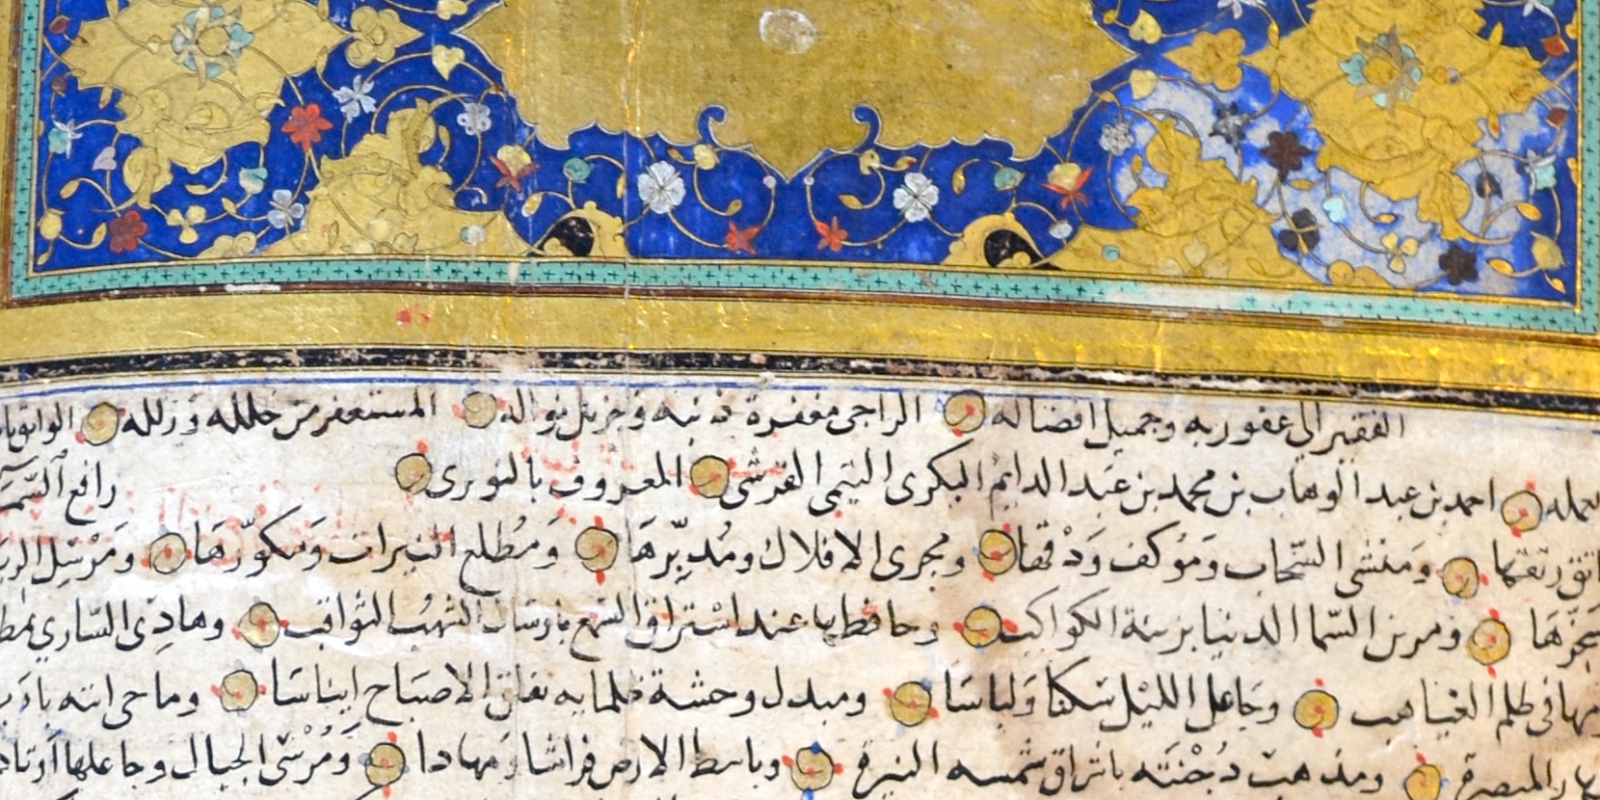 الفقير الى عفو ربه وجميل افضاله الراجى مغفرة ذنبه وجزيل نواله المستغفر من خلله وزلله الواثق
احمد بن عبد الوهاب بن محمد بن عبد الدايم البكرى التيمى القرشى المعروف بالنويرى رافع السَّمَا
رتقها ومنشى السّحاب وَمؤكف وَدْقها ومجرى الافلاك ومُدبّرهَا وَمُطلع النيرات وَمكوّرهَا ومرْسِل
ومزين السّما الدنيا بزينة الكواكب وحافظها عند اسْتراق السّمع بارسَال الشهُب الثواقب وهادِى السّاري
فى ظلم الغياهب وجَاعل الليْل سَكنًا وَلباسَا ومبدل وحشة ظلمايه بفلق الاصبَاح ايناسَا وماحى ايته
المبصرة ومذهبْ دُجْنَته باشراق شمسه النيرة وباسط الارض فراشا ومهادا وَمُرْسَى الجبال وجاعلها اوتاد